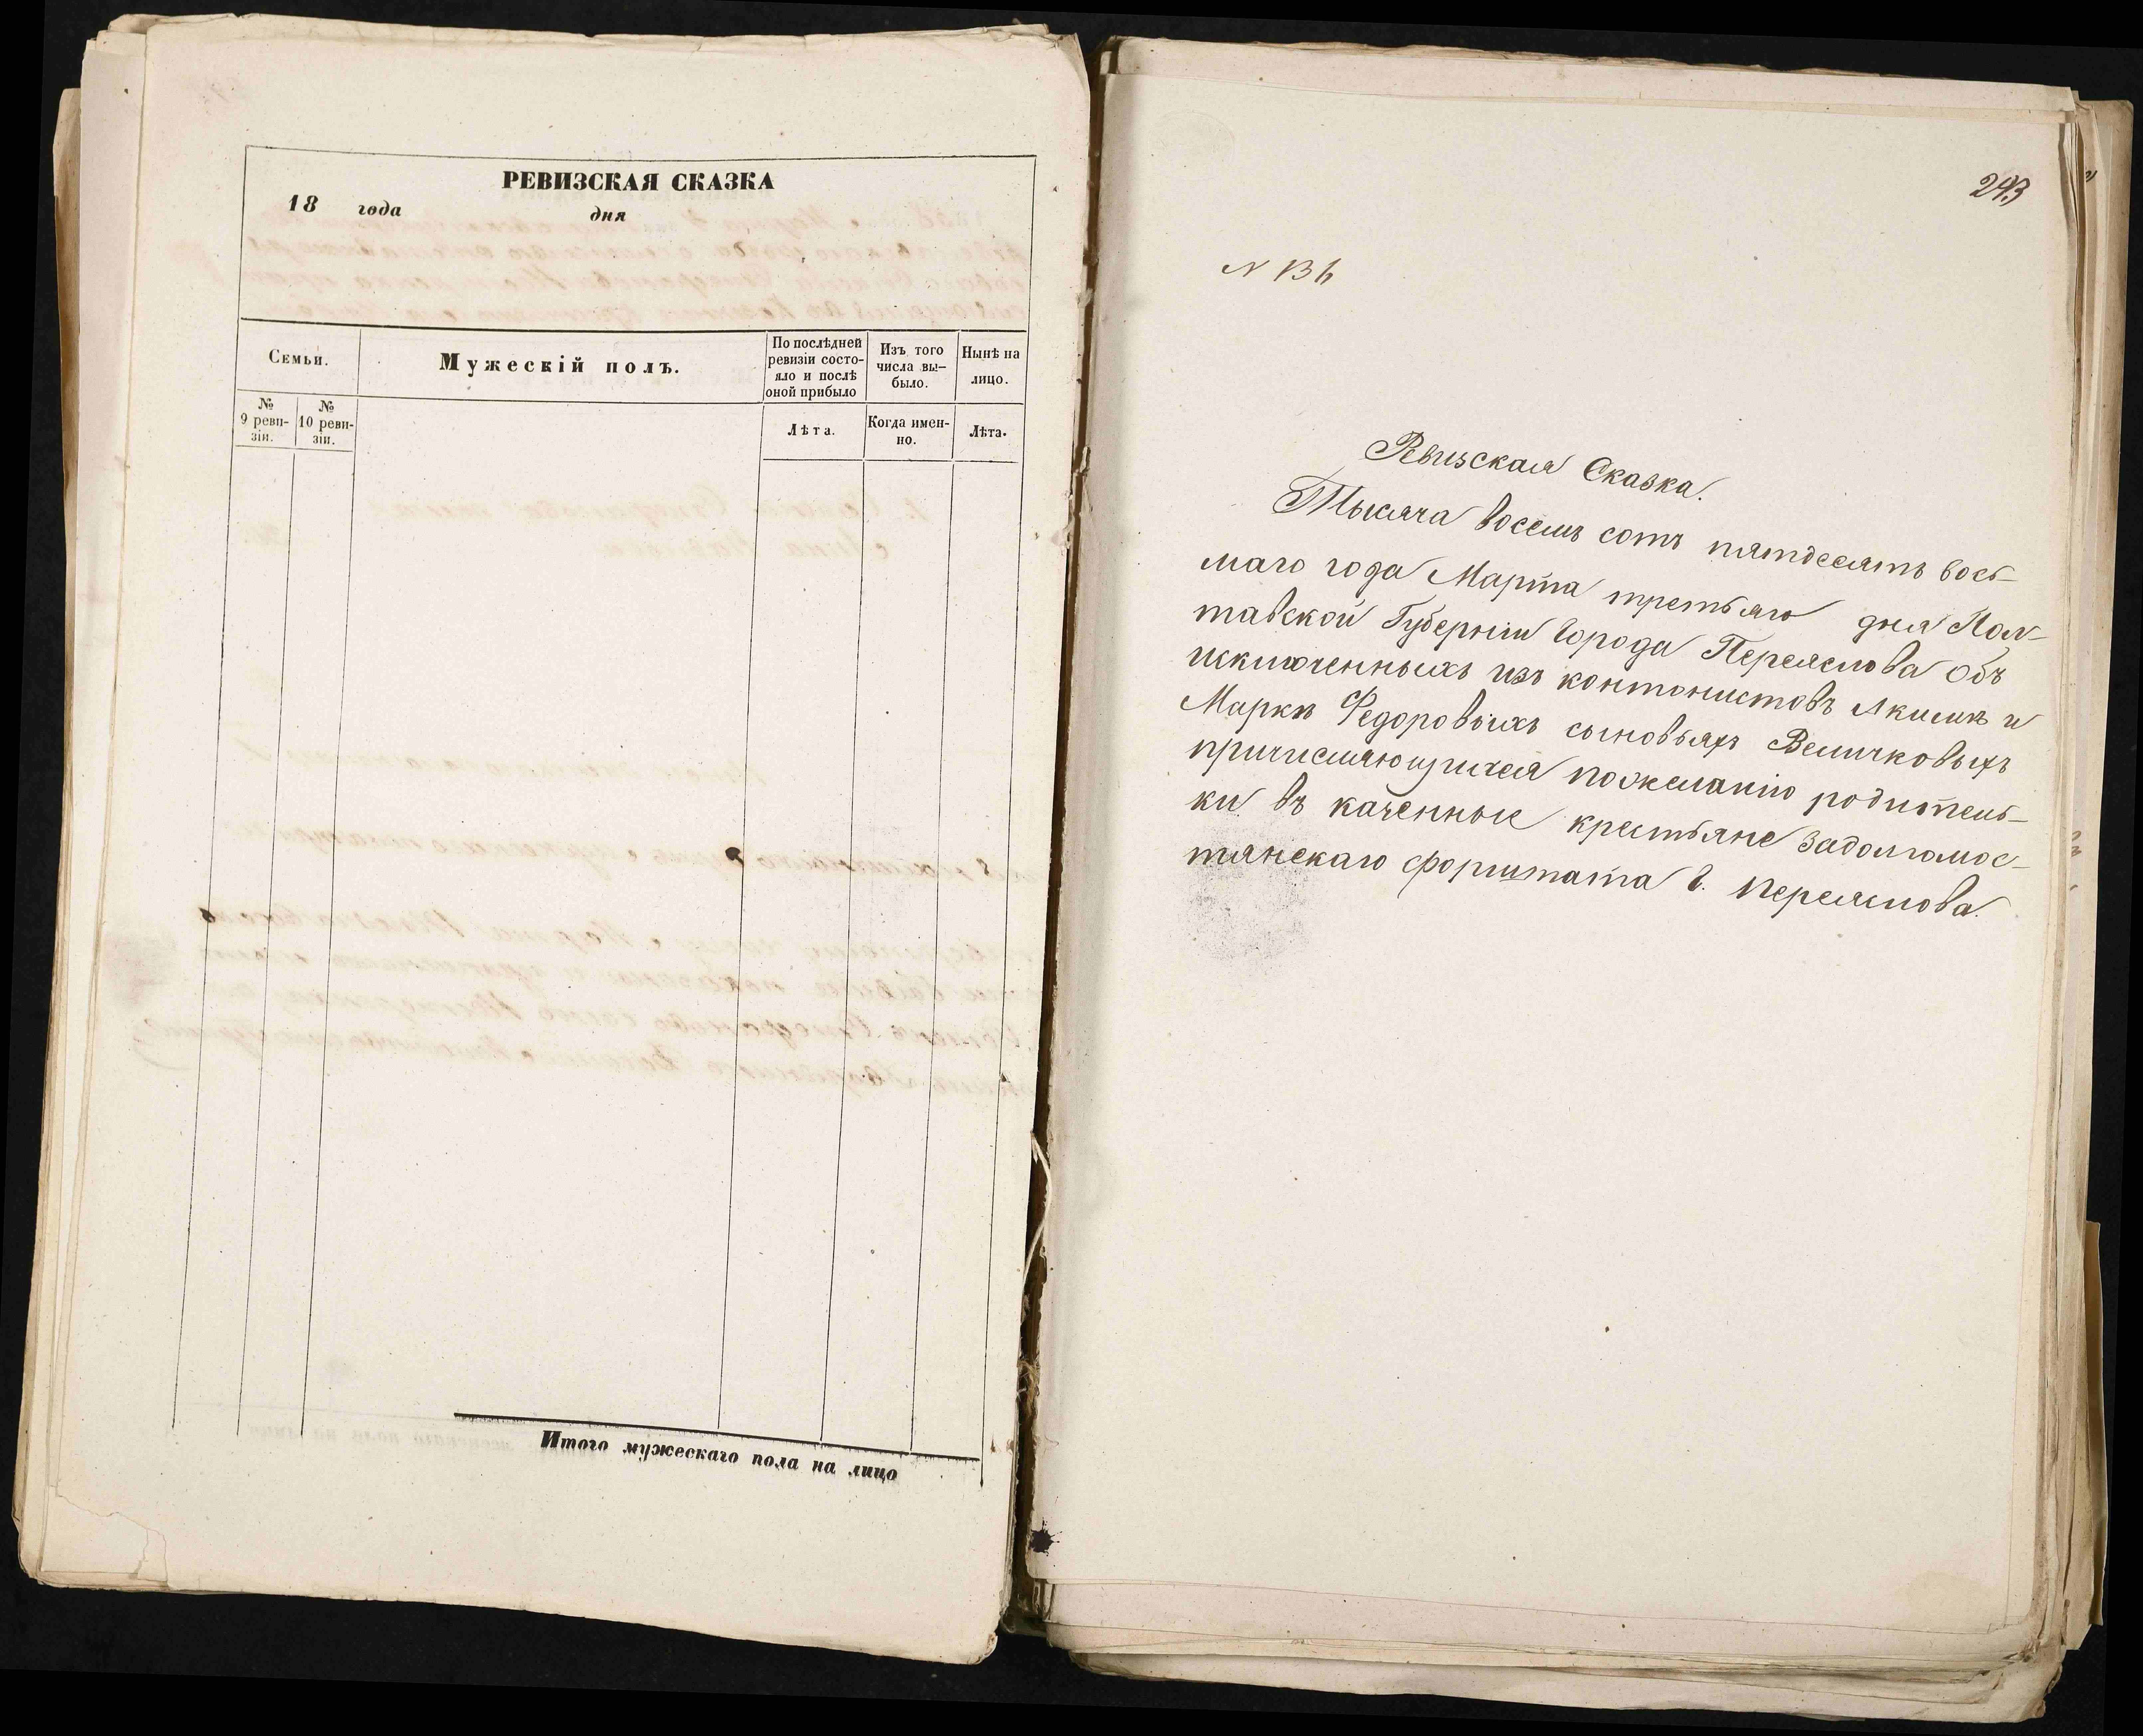 РЕВИЗСКАЯ СКАЗКА
18 года дня
Семьи.
Мужескій полъ.
По послѣдней ревизіи состо-
яло и послѣ
оной прибыло
Изъ того
числа вы-
было.
Нынѣ на
лицо.
№
9 реви-
зіи.
№
10 реви-
зіи.
Лѣта.
Когда имен-
но.
Лѣта.
Итого мужескаго пола на лицо
243
N 136
Ревизская Сказка.
Тысяча восемь сотъ пятдесятъ вось-
маго года Марта третьяго дня Пол-
тавской Губерніи Города Переяслова Объ
исключенныхъ изъ контонистовъ Якимѣ и
Маркѣ Федоровыхъ сыновьяхъ Величковыхъ
причисляющихся пожеланію родитель-
ки въ каченные крестьяне Задолгомос-
тянскаго форштата г. Переяслова.